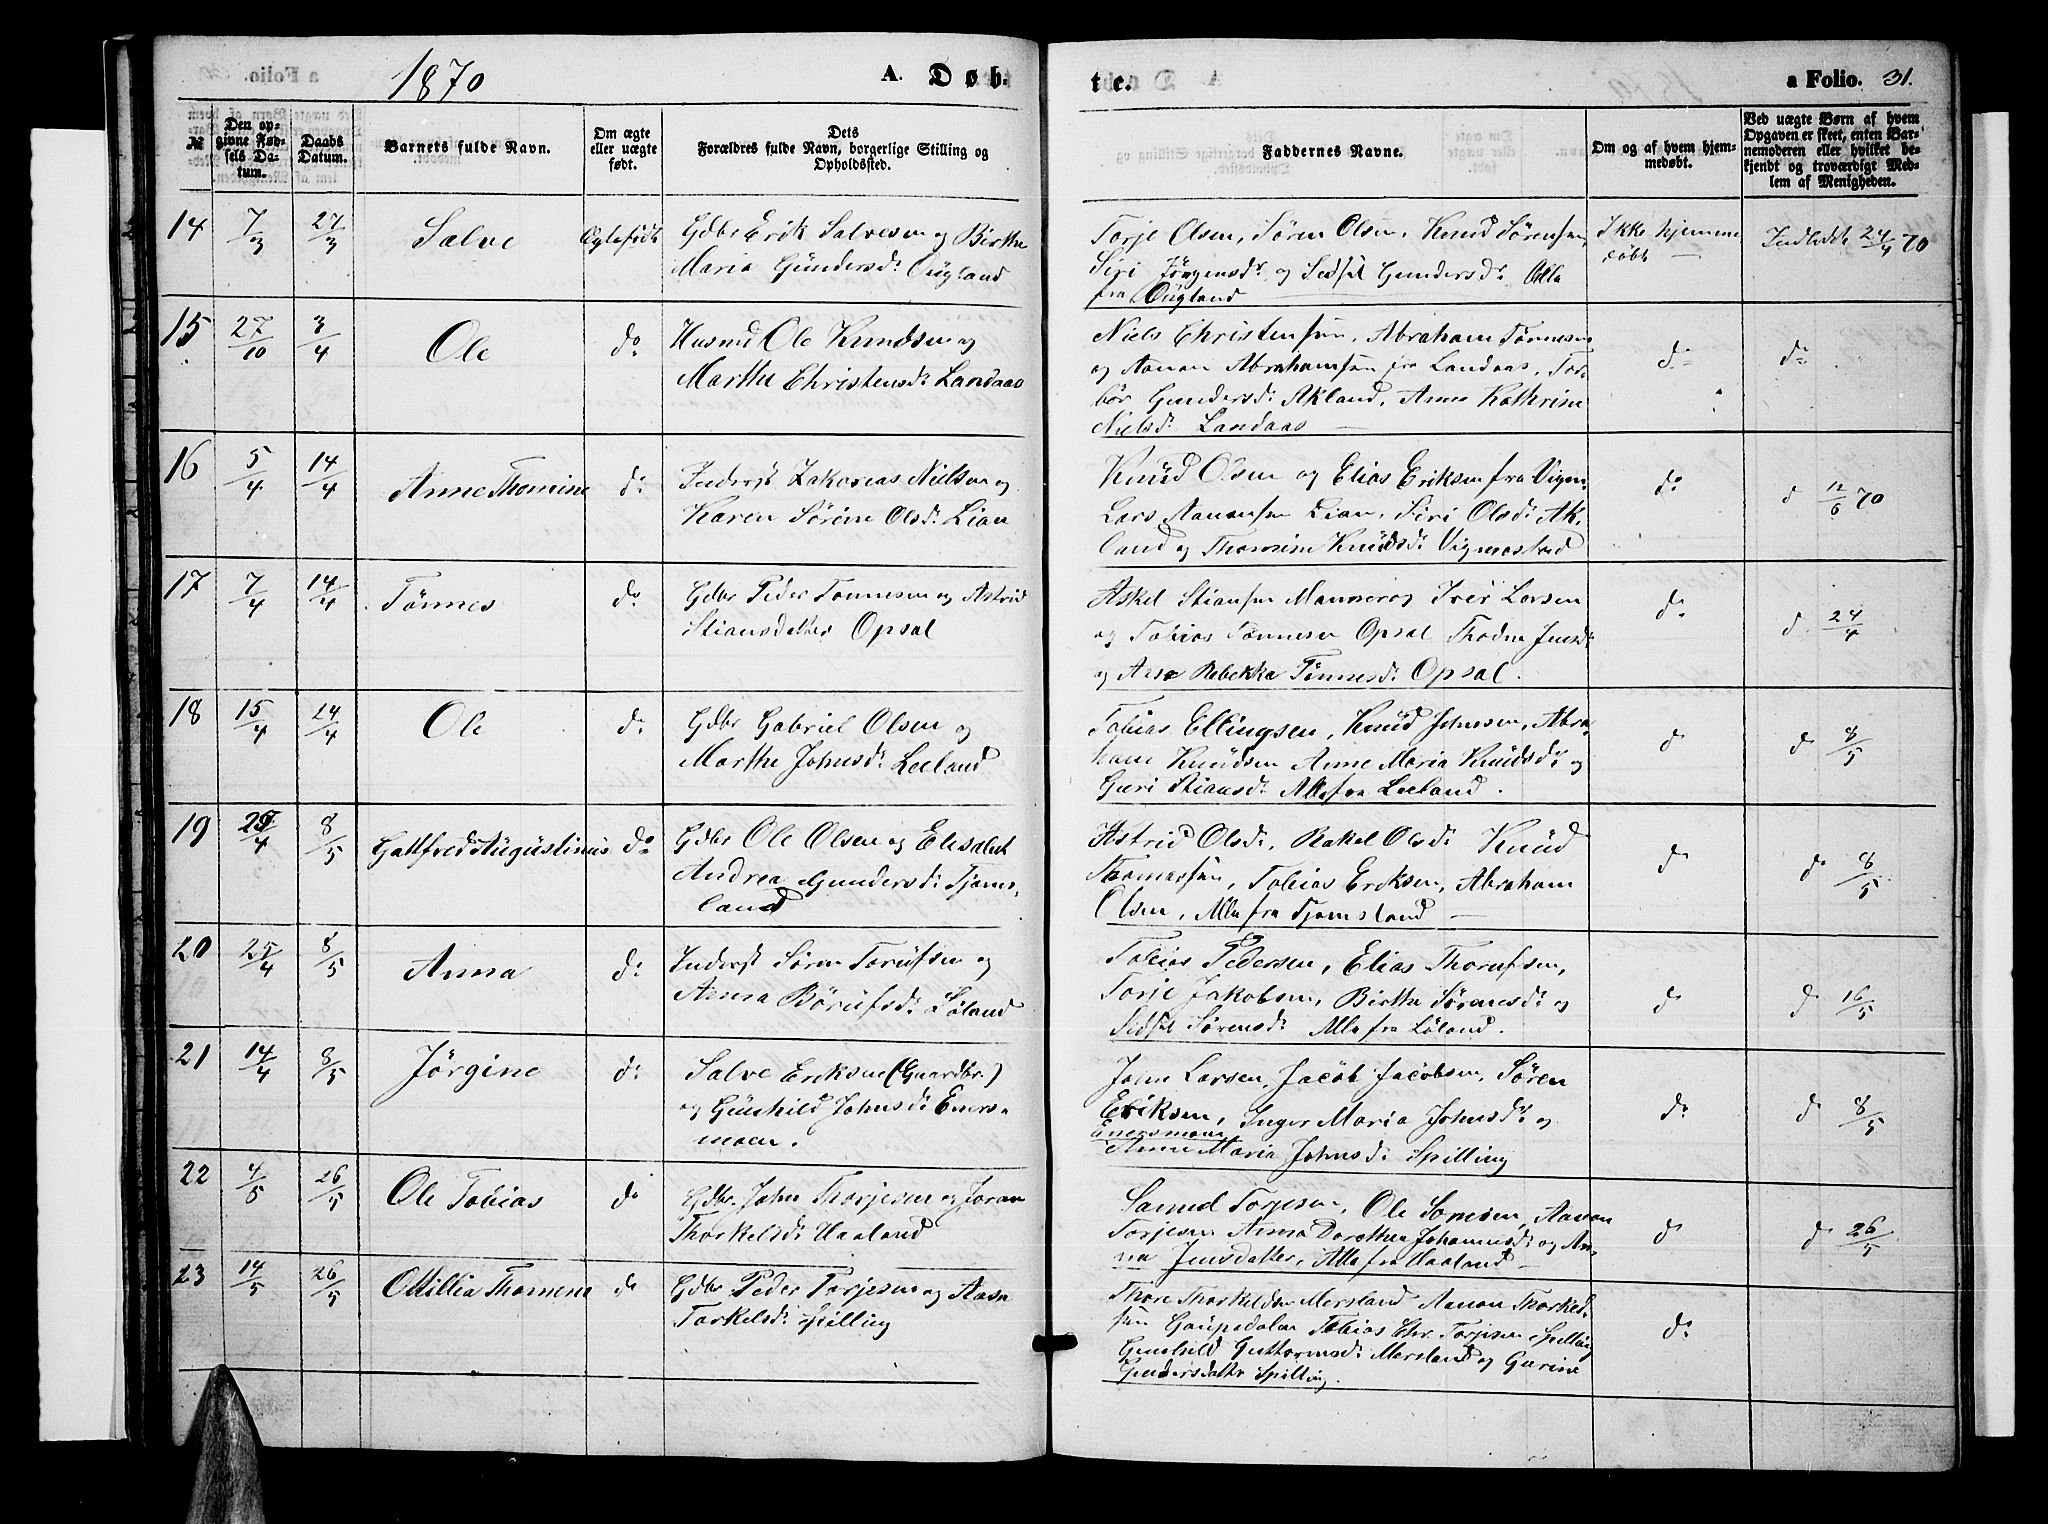 1870 A. Døb- te. a Folio. 31.
№ Den opgivne Fødsels Datum. Daabs Datum. Barnets fulde Navn. Om ægte eller uægte født. Dets Forældres fulde Navn, borgerlige Stilling og Opholdsted. Faddernes Navne. Om og af hvem hjemmedøbt. Ved uægte Børn af hvem Opgaven er skeet, enten Barnemoderen eller hvilket bekjendt og troværdigt Medlem af Menigheden.
14 7/3 27/3 Salve Ægtefødt
Gdbr Erik Salvesen og Birthe
Maria Gundersd: Øugland
Torje Olsen, Søren Olsen, Knud Sørensen,
Siri Jörgensdr og Sedsel Gundersd: Alle
fra Øugland
Ikke hjemme
døbt —
Indledt 24/4 70
15 27/10 3/4 Ole do
Husmd Ole Knudsen og
Marthe Christensd: Landaas
Niels Christensen, Abraham Tønnesen
og Aanon Abrahamsen fra Landaas, Tor-
bør Gundersd: Akland, Anne Kathrine
Nielsd: Landaas —
d: d:
16 5/4 14/4 Anne Thomine d:
Inderst Zakarias Nielsen og
Karen Sørine Olsd: Lian
Knud Olsen og Elias Eriksen fra Vigm:
Lars Aanensen Lian, Siri Olsd: Ak-
land og Thomine Knudsd: Vigmostad
d: d 12/6 70
17 7/4 14/4 Tönnes do
Gdbr Peder Tønnesen og Astrid
Stiansdatter Opsal
Askel Stiansen Mannerog Iver Larsen
og Tobias Tønnesen Opsal Thodne Jensd:
og Ane Rebekka Tønnesd: Opsal.
d: d. 24/4
18 15/4 24/4 Ole d:
Gdbr Gabriel Olsen og
Marthe Johnsd: Leeland
Tobias Ellingsen, Knud Johnsen, Abra-
ham Knudsen Anne Maria Knudsd: og
Guri Stiansd: Alle fra Leeland.
d d 8/5
19 8/5 Gattfred Augustinus do
Gdbr Ole Olsen og Elisabet
Andrea Gundersd: Tjoms-
land
Astrid Olsd:, Rakel Olsd: Knud
Thomassen, Tobias Eriksen, Abraham
Olsen, Alle fra Tjomsland —
d d 8/5
20 25/4 8/5 Anna d:
Inderst Søren Torufsen og
Anna Börufsd: Löland
Tobias Pedersen, Elias Thorufsen,
Torje Jakobsen, Birthe Sørensd: og
Sedsel Sørensd: Alle fra Löland.
d d 16/5
21 14/4 8/5 Jörgine d:
Salve Eriksen (Gaardbr.)
og Gunhild Johnsd: Eners-
moen.
John Larsen, Jacob Jacobsen, Søren
Eriksen, Inger Maria Johnsd: og
Enersmoen
Anne Maria Johnsd: Spilling
d: d 8/5
22 4/5 26/5 Ole Tobias d:
Gdbr. John Thorjesen og Joran
Thorkelsd: Haaland
Samuel Torjesen, Ole Aanon
Torjesen Anna Dorothea Johannesd: og An-
na Jensdatter, Alle fra Haaland —
d d 26/5
23 14/5 26/5 Otillia Thomine d:
Gdbr Peder Torjesen og Aase
Torkelsd: Spilling
Thore Thorkeldsen Mersland Aanon Thorkeld-
sen Gaupedalen Tobias Chr. Torjesen Spilling
Gunhild Guttormsd: Mersland og Gurine
Gundersdatter Spilling.
d: